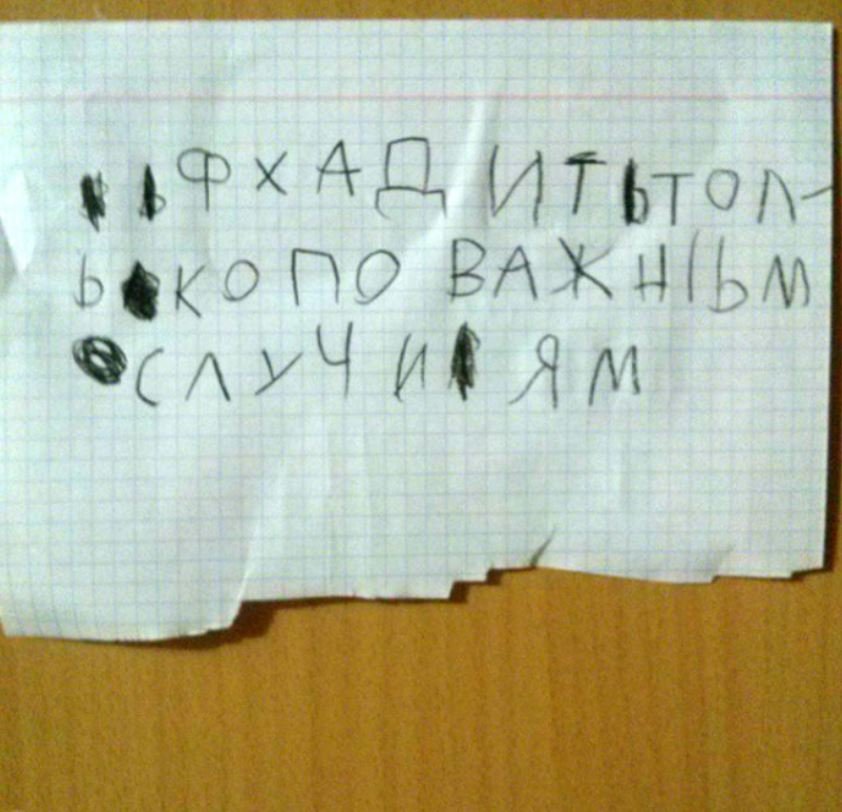 ФХАДИТЬТОЛ-
ЬКОПО ВАЖНІЬМ
СЛУЧИЯМ